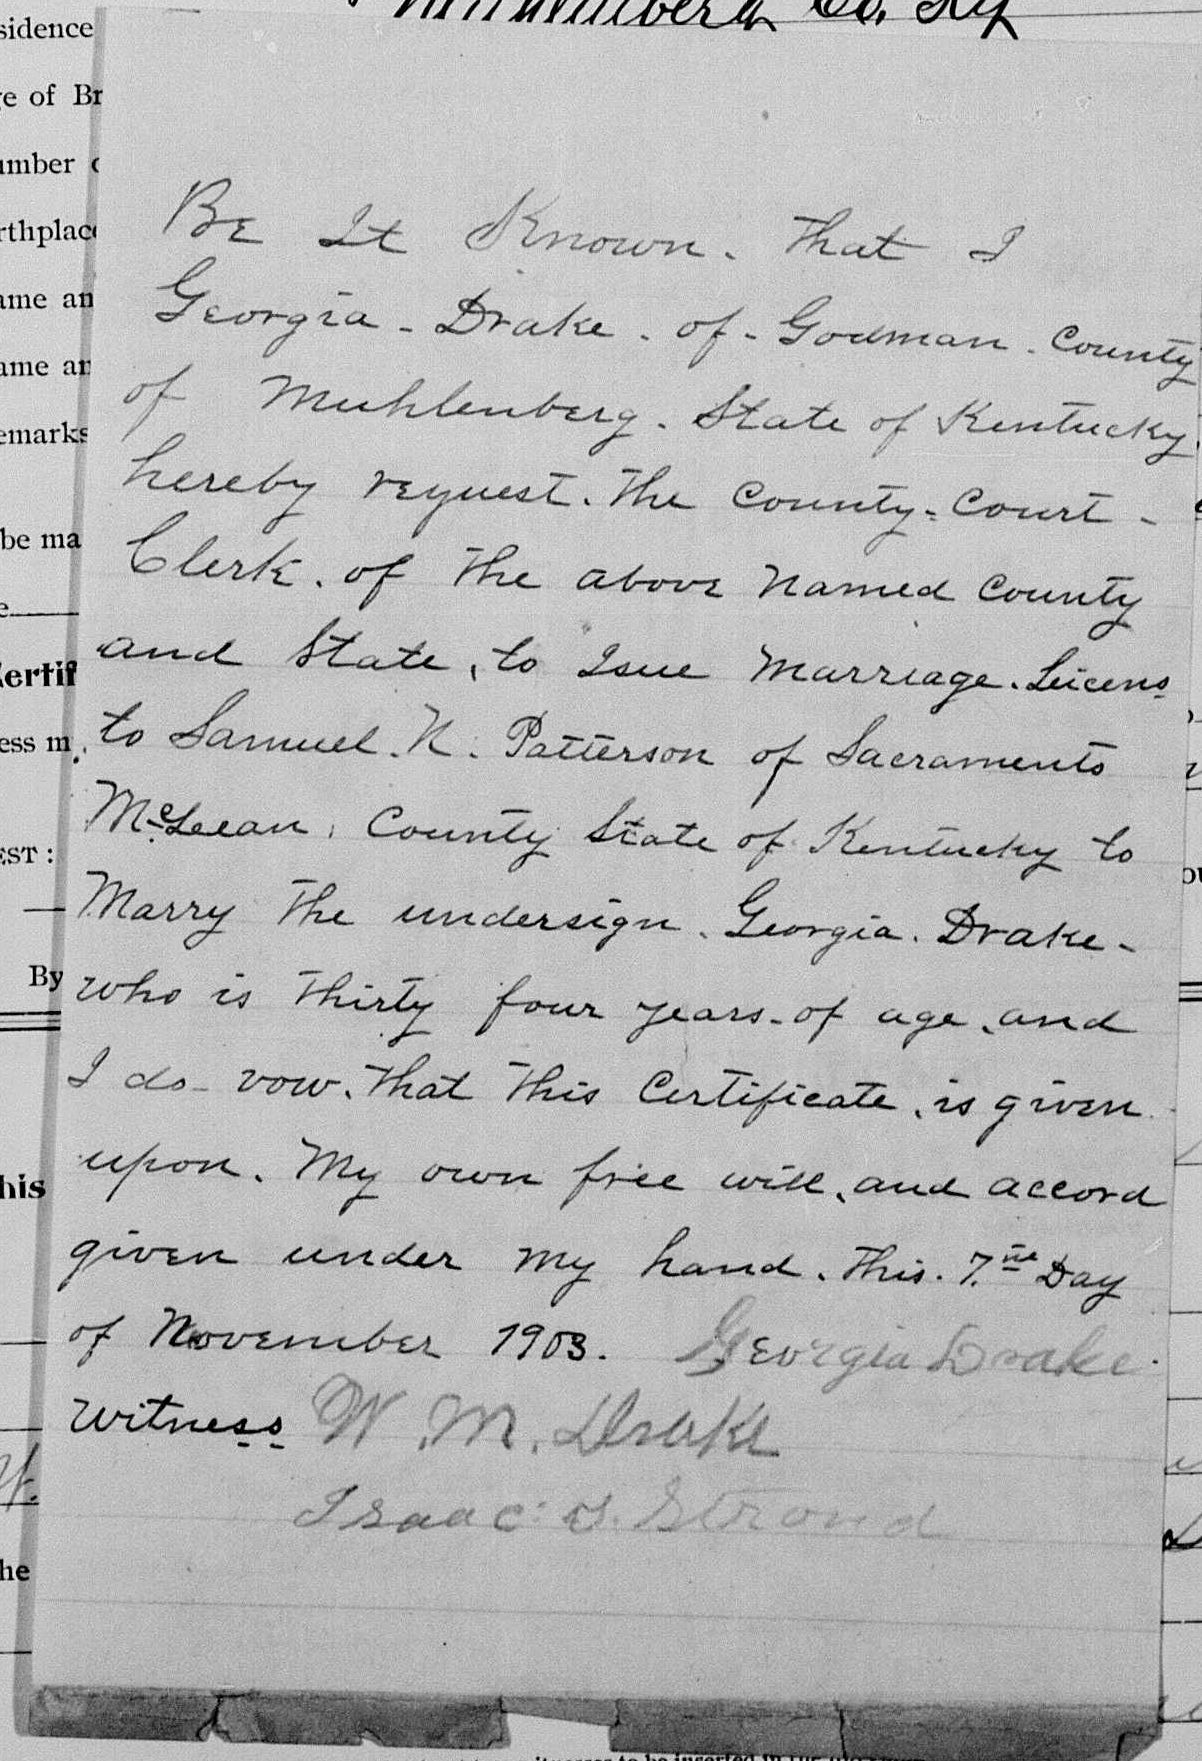 Muhlenberg Co. Ky
sidence
ge of Br
umber
rthplace
ame an
ame an
emarks
be ma
e
Certif
ess m
EST :
By
his
he
Be It Known. That I
Georgia - Drake. of - Godman. County
of Muhlenberg. State of Kentucky.
hereby request. The County-Court -
Clerk. of The above Named County
and State, to Isue Marriage. Leicens
to Samuel. N. Patterson of Sacramento
McLeean, County State of Kentucky to
Marry The undersign. Georgia. Drake -
who is Thirty four years. of age, and
I do vow. That This Certificate, is given
upon. My own free will, and accord
given under My hand. This. 7.ne Day
of November 1903. Georgia Drake.
Witness W. M. Drake
Isaac. Strond